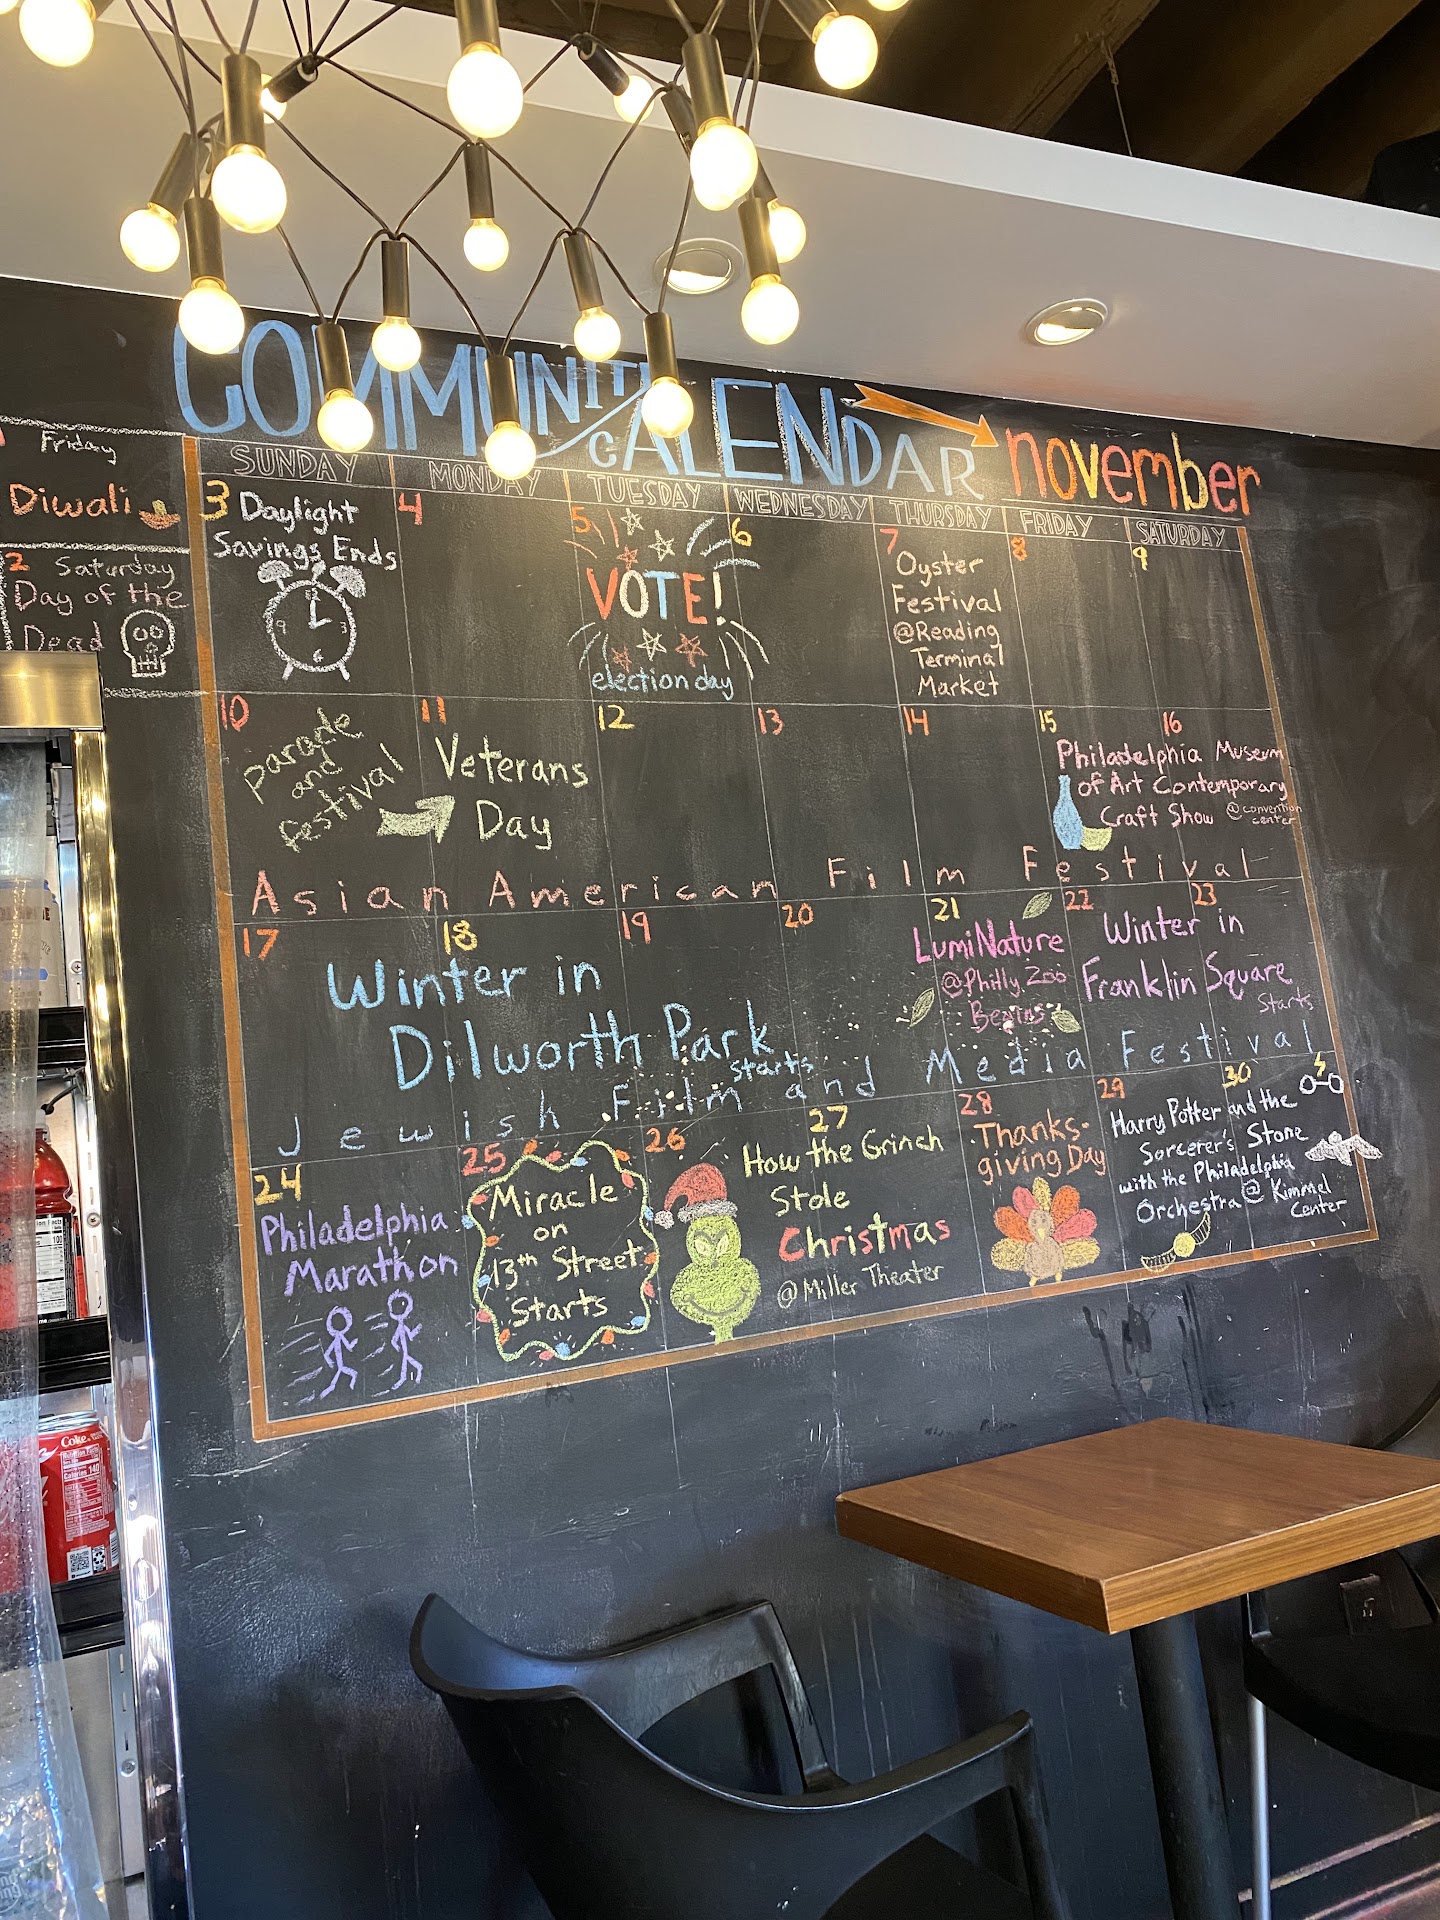 COMMUNITY CALENDAR
november
Friday
Diwali
2 Saturday
Day of the
Dead
SUNDAY
MONDAY
TUESDAY
WEDNESDAY
THURSDAY
FRIDAY
SATURDAY
3 Daylight
Savings Ends
12
9 3
6
4
5
VOTE!
election day
6
7
Oyster
Festival
@Reading
Terminal
Market
8
9
10
Parade
and
festival
11
Veterans
Day
12
13
14
15
16
Philadelphia Museum
of Art Contemporary
Craft Show @convention
center
Asian American Film Festival
17
18
19
20
Winter in
Dilworth Park
starts
21
LumiNature
@Philly Zoo
Begins
22
23
Winter in
Franklin Square
Starts
Jewish Film and Media Festival
24
Philadelphia
Marathon
25
Miracle
on
13th Street
Starts
26
27
How the Grinch
Stole
Christmas
@Miller Theater
28
Thanks-
giving Day
29
30
Harry Potter and the
Sorcerer's Stone
with the Philadelphia
Orchestra @ Kimmel
Center
Coke
Nutrition Facts
Calories 140